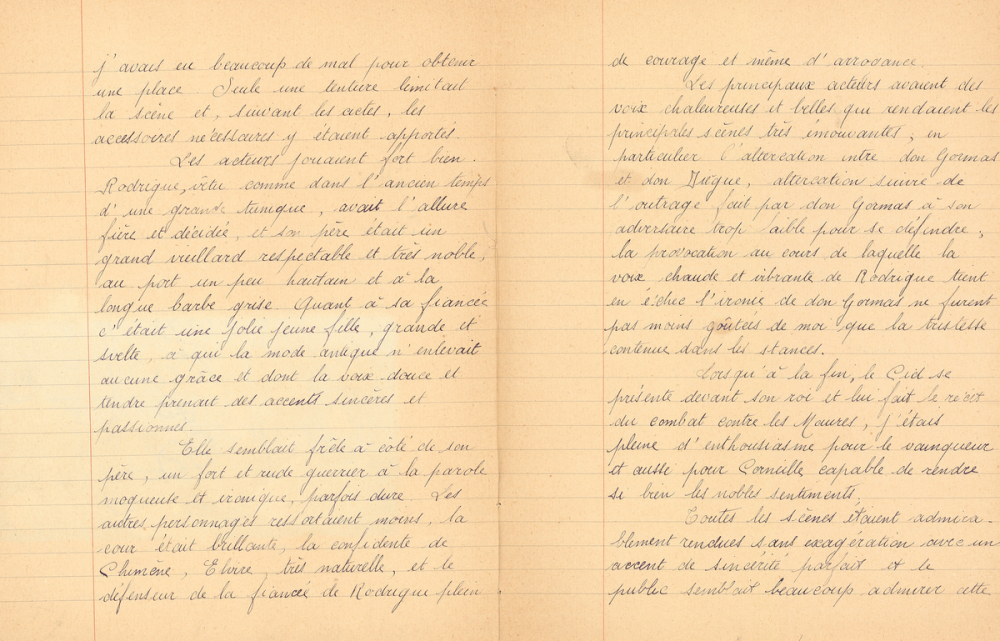 j'avais eu beaucoup de mal pour obtenir
une place. Seule une tenture limitait
la scène et, suivant les actes, les
accessoires nécessaires y étaient apportés.
Les acteurs jouaient fort bien.
Rodrigue, vêtu comme dans l'ancien temps
d'une grande tunique, avait l'allure
fière et décidée, et son père était un
grand vieillard respectable et très noble,
au port un peu hautain et à la
longue barbe grise. Quant à sa fiancée
c'était une jolie jeune fille, grande et
svelte, à qui la mode antique n'enlevait
aucune grâce et dont la voix douce et
tendre prenait des accents sincères et
passionnés.
Elle semblait frêle à côté de son
père, un fort et rude guerrier à la parole
moqueuse et ironique, parfois dure. Les
autres personnages ressortaient moins, la
cour était brillante, la confidente de
Chimène, Elvire, très naturelle, et le
défenseur de la fiancée de Rodrigue plein
de courage et même d'arrogance.
Les principaux acteurs avaient des
voix chaleureuses et belles qui rendaient les
principales scènes très émouvantes ; en
particulier l'altercation entre don Gormas
et don Diègue, altercation suivie de
l'outrage fait par don Gormas à son
adversaire trop faible pour se défendre ;
la provocation au cours de laquelle la
voix chaude et vibrante de Rodrigue tient
en échec l'ironie de don Gormas ne furent
pas moins goûtées de moi que la tristesse
contenue dans les stances.
Lorsqu'à la fin, le Cid se
présente devant son roi et lui fait le récit
du combat contre les Maures, j'étais
pleine d'enthousiasme pour le vainqueur
et aussi pour Corneille capable de rendre
si bien les nobles sentiments.
Toutes les scènes étaient admira-
blement rendues sans exagération avec un
accent de sincérité parfait et le
public semblait beaucoup admirer cette